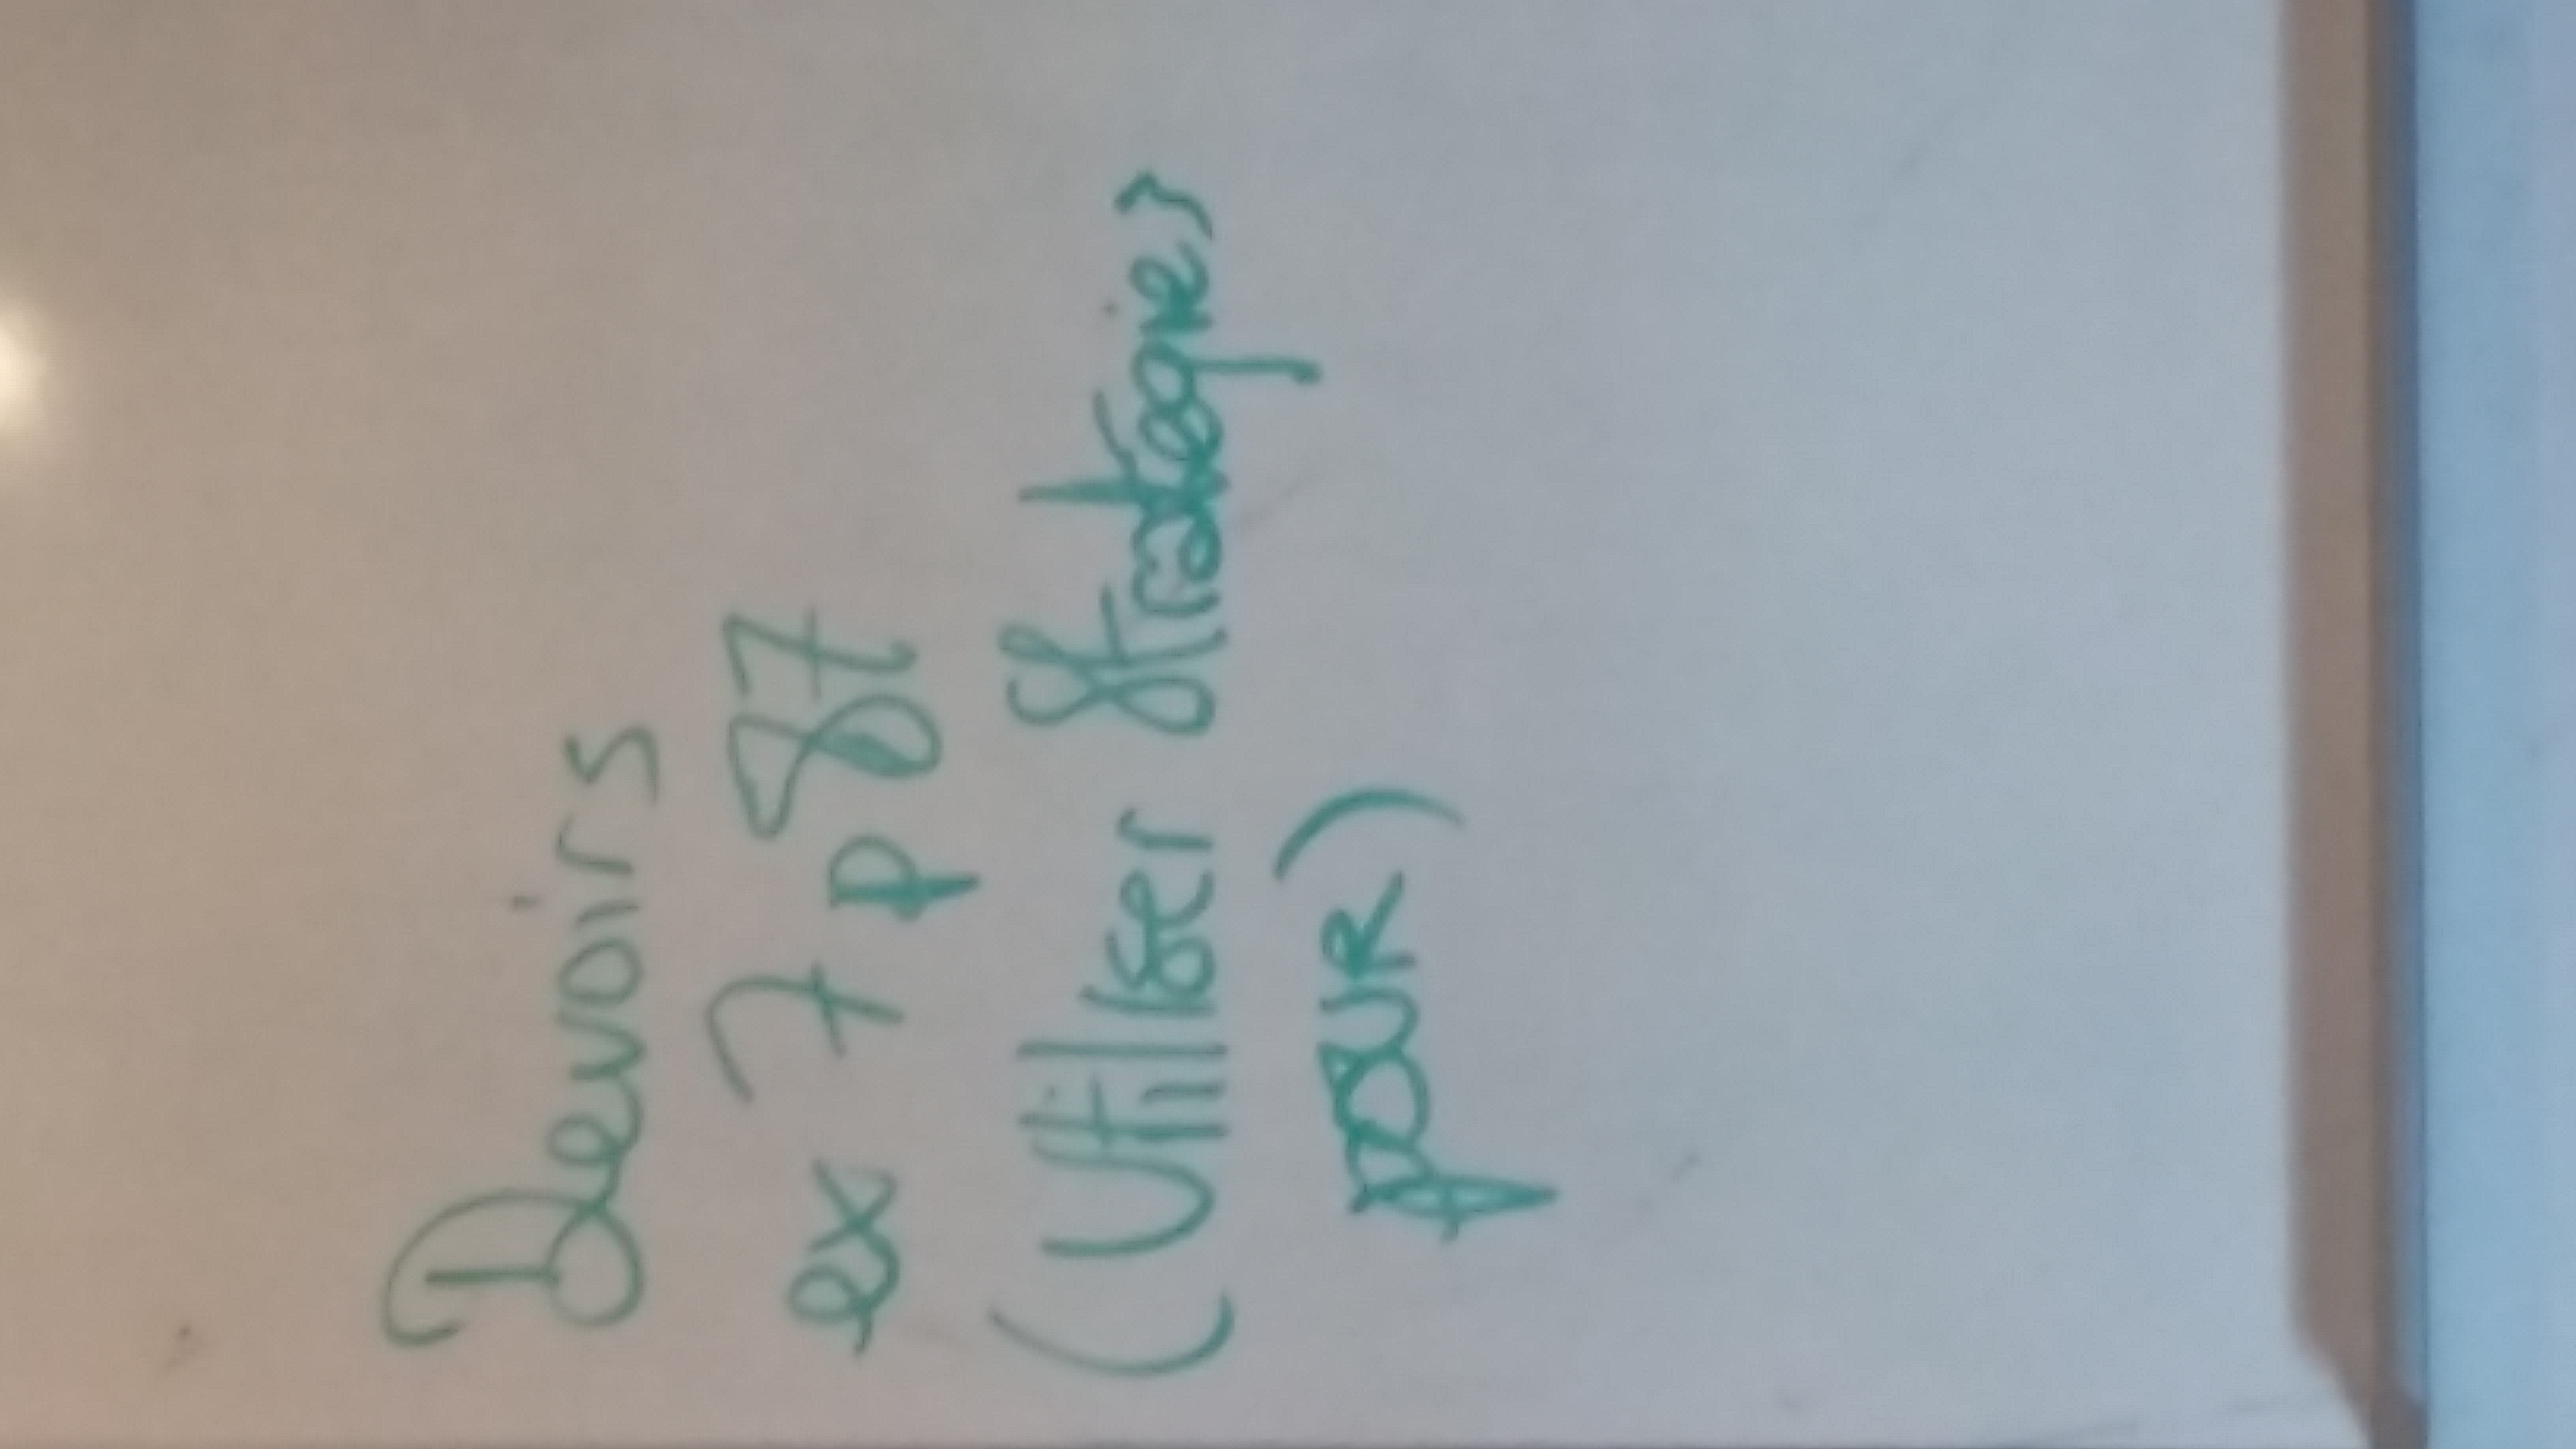 Devoirs
ex 7 p 87
(Utiliser Stratégies
pOUR)